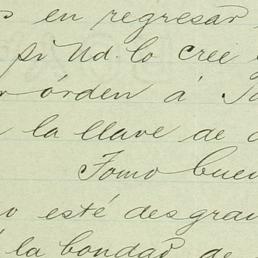 en regresar
si Ud. lo cree
órden á
la llave de
Tomo buen
esté desgra
la bondad de